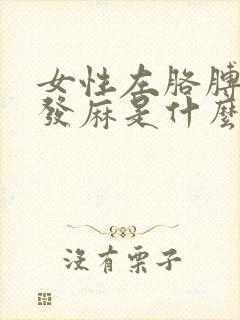 女性左胳膊
發麻是什麼
沒有栗子